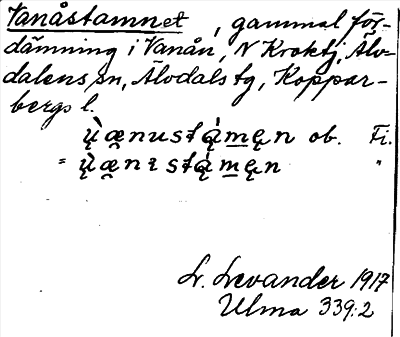 Vanåstamnet, gammal för-
dämning i Vanån, N Kroktj, Älv-
dalens sn, Älvdals tg, Koppar-
bergs l.
ų̀ænustą̀męn ob. Fi.
" ų̀ænɩstą̀męn "
L. Levander 1917
Ulma 339:2